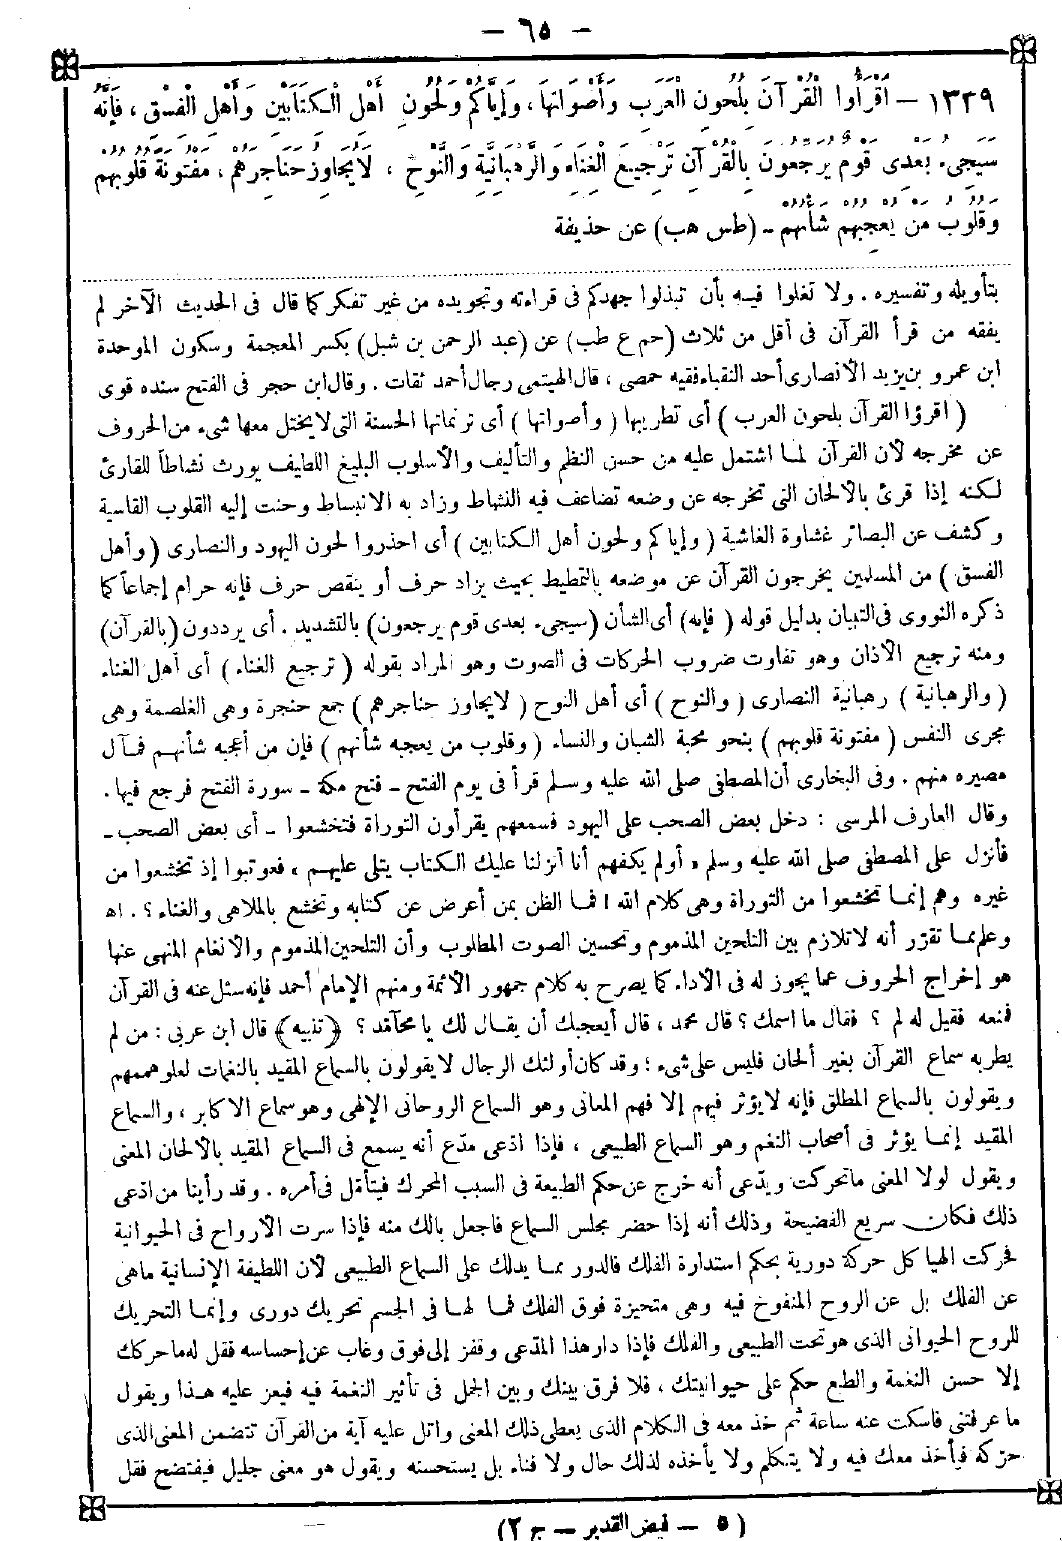 — ٦٥ —
١٣٣٩ — اقْرَأُوا الْقُرْآنَ بِلُحُونِ الْعَرَبِ وَأَصْوَاتِهَا، وَإِيَّاكُمْ وَلُحُونَ أَهْلِ الْكِتَابَيْنِ وَأَهْلِ الْفِسْقِ، فَإِنَّهُ
سَيَجِيءُ بَعْدِي قَوْمٌ يُرَجِّعُونَ بِالْقُرْآنِ تَرْجِيعَ الْغِنَاءِ وَالرَّهْبَانِيَّةِ وَالنَّوْحِ، لَا يُجَاوِزُ حَنَاجِرَهُمْ، مَفْتُونَةٌ قُلُوبُهُمْ
وَقُلُوبُ مَنْ يُعْجِبُهُمْ شَأْنُهُمْ - (طس هب) عن حذيفة
بتأويله وتفسيره. ولا تغلوا فيه بأن تبذلوا جهدكم فى قراءته وتجويده من غير تفكر كما قال فى الحديث الآخر لم
يفقه من قرأ القرآن فى أقل من ثلاث (حم ع طب) عن (عبد الرحمن بن شبل) بكسر المعجمة وسكون الموحدة
ابن عمرو بن يزيد الأنصارى أحد النقباء فقيه حمصى، قال الهيتمى رجال أحمد ثقات. وقال ابن حجر فى الفتح سنده قوى
(اقرؤا القرآن بلحون العرب) أى تطريبها (وأصواتها) أى ترنماتها الحسنة التى لا يختل معها شىء من الحروف
عن مخرجه لأن القرآن لما اشتمل عليه من حسن النظم والتأليف والأسلوب البليغ اللطيف يورث نشاطاً للقارئ
لكنه إذا قرئ بالألحان التى تخرجه عن وضعه تضاعف فيه النشاط وزاد به الانبساط وحنت إليه القلوب القاسية
وكشف عن البصائر غشاوة الغاشية (وإياكم ولحون أهل الكتابين) أى احذروا لحون اليهود والنصارى (وأهل
الفسق) من المسلمين يخرجون القرآن عن موضعه بالتمطيط بحيث يزاد حرف أو ينقص حرف فإنه حرام إجماعاً كما
ذكره النووى فى التبيان بدليل قوله (فإنه) أى الشأن (سيجىء بعدى قوم يرجعون) بالتشديد. أى يرددون (بالقرآن)
ومنه ترجيع الأذان وهو تفاوت ضروب الحركات فى الصوت وهو المراد بقوله (ترجيع الغناء) أى أهل الغناء
(والرهبانية) رهبانية النصارى (والنوح) أى أهل النوح (لا يجاوز حناجرهم) جمع حنجرة وهى الغلصمة وهى
مجرى النفس (مفتونة قلوبهم) بنحو محبة الشبان والنساء (وقلوب من يعجبه شأنهم) فإن من أعجبه شأنهم فمآل
مصيره منهم. وفى البخارى أن المصطفى صلى الله عليه وسلم قرأ فى يوم الفتح - فتح مكة - سورة الفتح فرجع فيها.
وقال العارف المرسى: دخل بعض الصحب على اليهود فسمعهم يقرأون التوراة فتخشعوا - أى بعض الصحب -
فأنزل على المصطفى صلى الله عليه وسلم «أولم يكفهم أنا أنزلنا عليك الكتاب يتلى عليهم» فعوتبوا إذ تخشعوا من
غيره وهم إنما تخشعوا من التوراة وهى كلام الله! فما الظن بمن أعرض عن كتابه وتخشع بالملاهى والغناء؟. اه
وعلم مما تقرّر أنه لا تلازم بين التلحين المذموم وتحسين الصوت المطلوب وأن التلحين المذموم والأنغام المنهى عنها
هو إخراج الحروف عما يجوز له فى الأداء كما يصرح به كلام جمهور الأئمة ومنهم الإمام أحمد فإنه سئل عنه فى القرآن
فمنعه فقيل له لم؟ فقال ما اسمك؟ قال محمد، قال أيعجبك أن يقال لك يا محآمد؟ ﴿تنبيه﴾ قال ابن عربى: من لم
يطربه سماع القرآن بغير ألحان فليس على شىء؛ وقد كان أولئك الرجال لا يقولون بالسماع المقيد بالنغمات لعلو هممهم
ويقولون بالسماع المطلق فإنه لا يؤثر فيهم إلا فهم المعانى وهو السماع الروحانى الإلهى وهو سماع الأكابر، والسماع
المقيد إنما يؤثر فى أصحاب النغم وهو السماع الطبيعى، فإذا ادّعى مدّع أنه يسمع فى السماع المقيد بالألحان المعنى
ويقول لولا المعنى ما تحركت ويدّعى أنه خرج عن حكم الطبيعة فى السبب المحرك فيتأمل فى أمره. وقد رأينا من ادّعى
ذلك فكان سريع الفضيحة وذلك أنه إذا حضر مجلس السماع فاجعل بالك منه فإذا سرت الأرواح فى الحيوانية
فحركت الهياكل حركة دورية بحكم استدارة الفلك فالدور مما يدلك على السماع الطبيعى لأن اللطيفة الإنسانية ماهى
عن الفلك بل عن الروح المنفوخ فيه وهى متحيزة فوق الفلك فما لها فى الجسم تحريك دورى وإنما التحريك
للروح الحيوانى الذى هو تحت الطبيعى والفلك فإذا دار هذا المدّعى وقفز إلى فوق وغاب عن إحساسه فقل له ما حركك
إلا حسن النغمة والطبع حكم على حيوانيتك، فلا فرق بينك وبين الجمل فى تأثير النغمة فيه فيعز عليه هذا ويقول
ما عرفتنى فاسكت عنه ساعة ثم خذ معه فى الكلام الذى يعطى ذلك المعنى واتل عليه آية من القرآن تتضمن المعنى الذى
حرّكه فيأخذ معك فيه ولا يتكلم ولا يأخذه لذلك حال ولا فناء بل يستحسنه ويقول هو معنى جليل فيفتضح فقل
(٥ — فيض القدير — ج ٢)